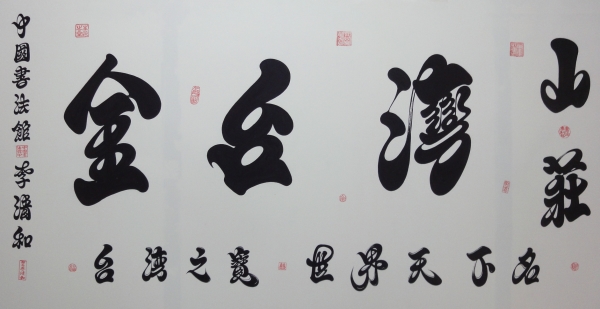 金台灣
山莊
台湾之寶 世界天下名
中國書法館 李清和